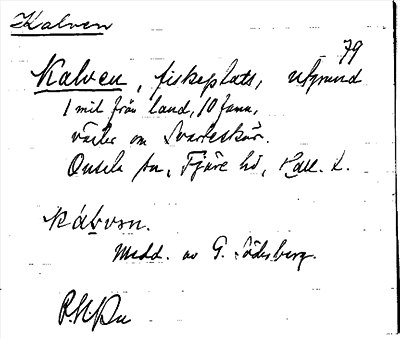 Kalven
79
Kalven, fiskeplats, utgrund
1 mil från land, 10 famn,
väster om Svarteskär.
Onsala sn, Fjäre hd, Hall. l.
Kálvən.
Medd. av G. Söderberg.